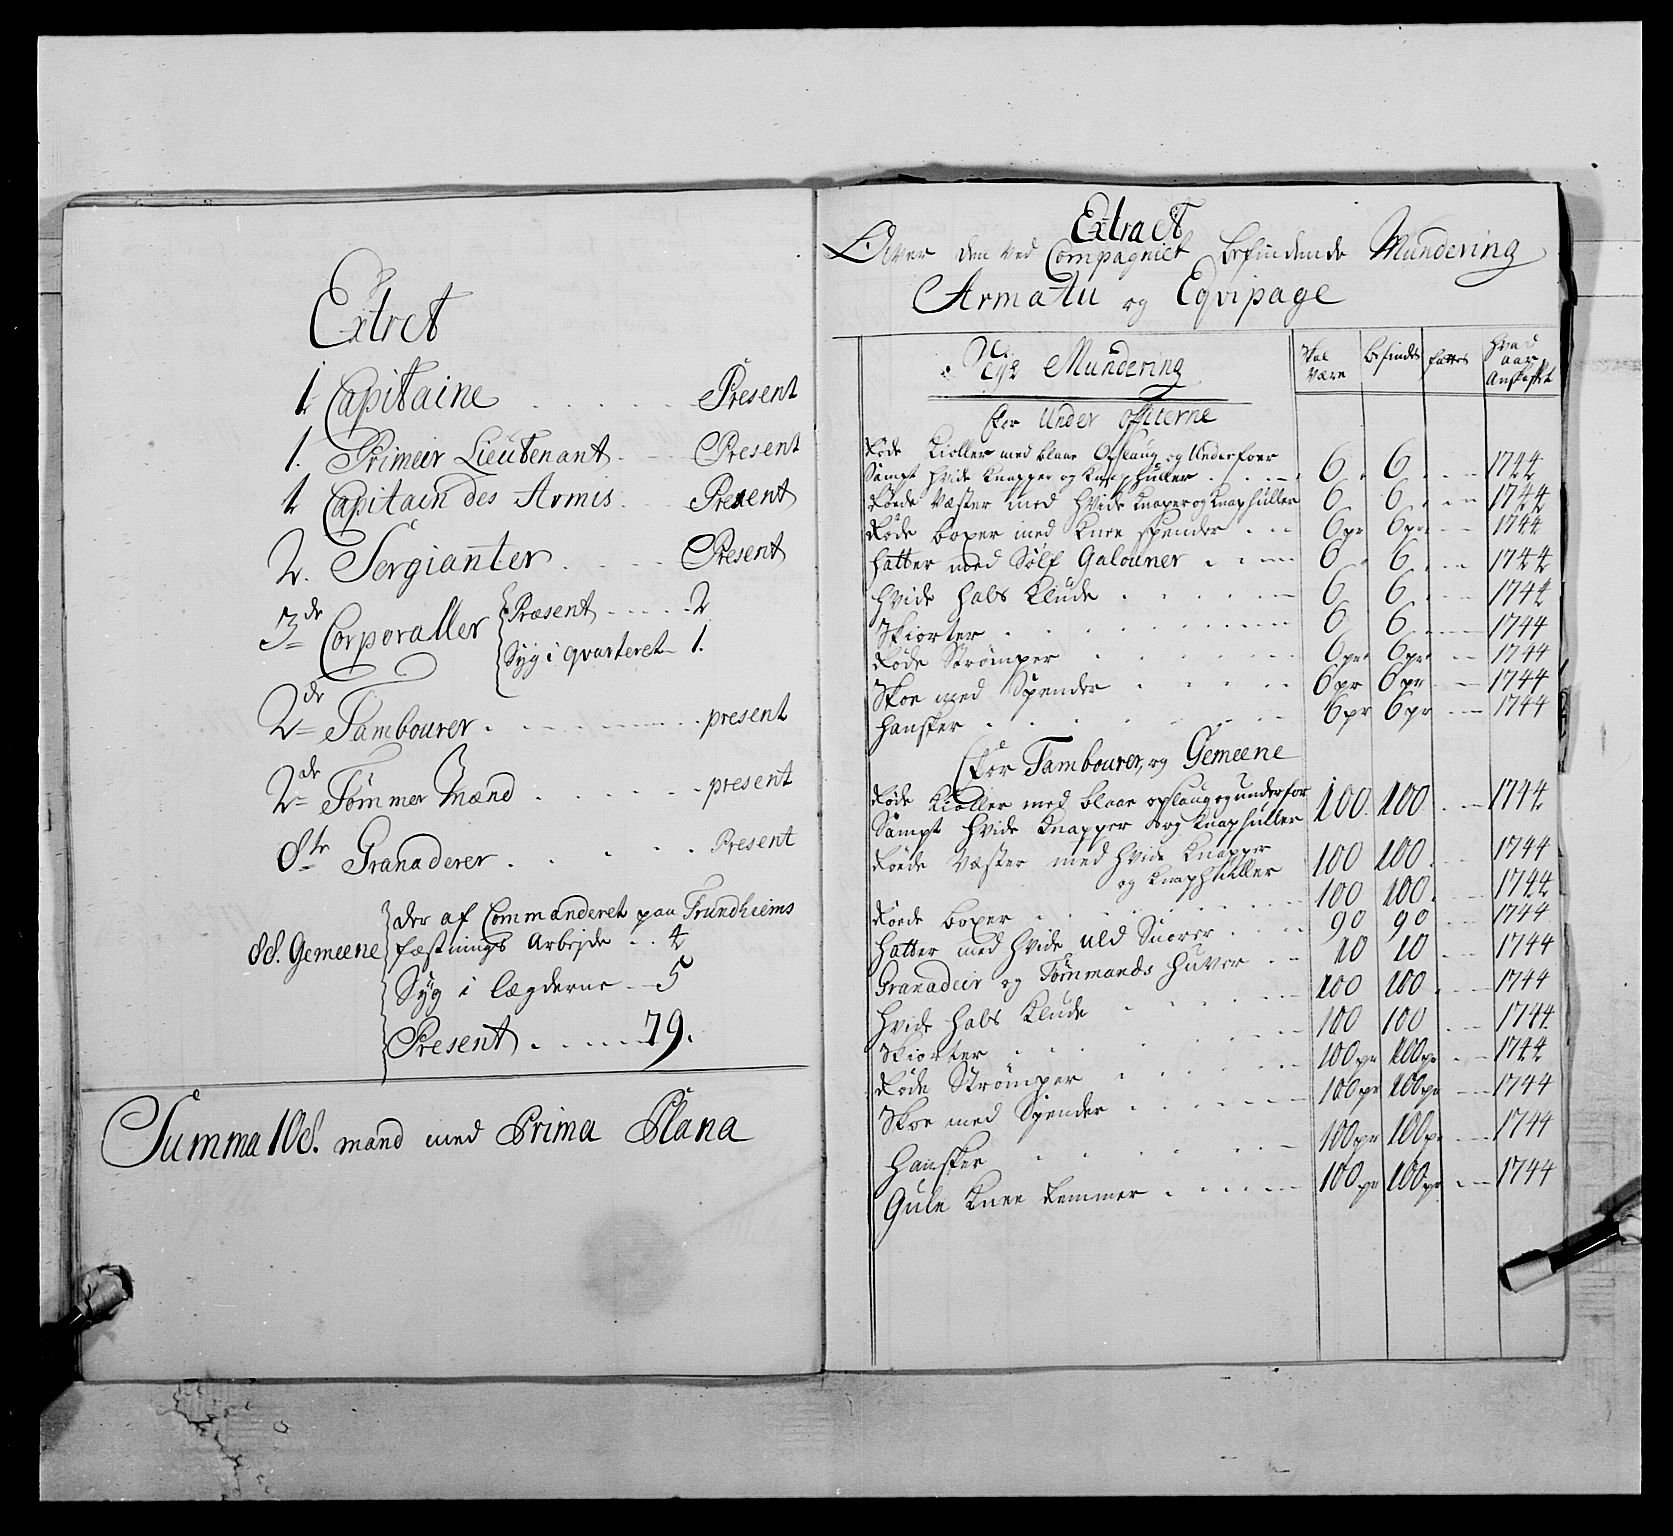 Extret
1 Capitaine Present
1. Primeir Lieutenant Present
1 Capitain des Armis Present
2. Sergianter Present
3de Corporaller Præsent 2
Syg i qvarteret 1.
2de Tambourer present
2de Tømmer Mænd present
8te Granaderer Present
88. Gemeene der af Commanderet paa Trundhiems
fæstnings Arbejde 4
Syg i lægderne 5
Present 79.
Summa 108. mand med Prima Plana
Extract
Over den ved Compagniet befindende Mundering
Armatu og Eqvipage
Mundering
Skal være
befindes
fattes
hvad aar Anskaffet
For Under officerne
Røde Kioller med blaae Opslaug og Underfoer
Sampt Hvide Knapper og Knaphuller 6 6 1744
Røede Væster med Hvide Knaper og Knaphuller 6 6 1744
Røde boxer med Knee spender 6pr 6pr 1744
Hatter med Sølf Galouner 6 6 1744
Hvide Hals Klude 6 6 1744
Skiorter 6 6 1744
Røde Strømper 6pr 6pr 1744
Skoe med Spender 6pr 6pr 1744
Hansker 6pr 6pr 1744
For Tambourer, og Gemeene
Røde Kioller med blaae opslaug og underfor
Sampt Hvide Knapper og Knaphuller 100 100 1744
Røede Væster med Hvide Knapper
og Knaphuller 100 100 1744
Røede boxer 100 100 1744
Hatter med Hvide uld Snorer 90 90 1744
Granadeir og Tømmands Huver 10 10 1744
Hvide Hals Klude 100 100 1744
Skiorter 100 100 1744
Røde Strømper 100pr 100pr 1744
Skoe med Spender 100pr 100pr 1744
Hansker 100pr 100pr 1744
Gule Knee Remmer 100pr 100pr 1744